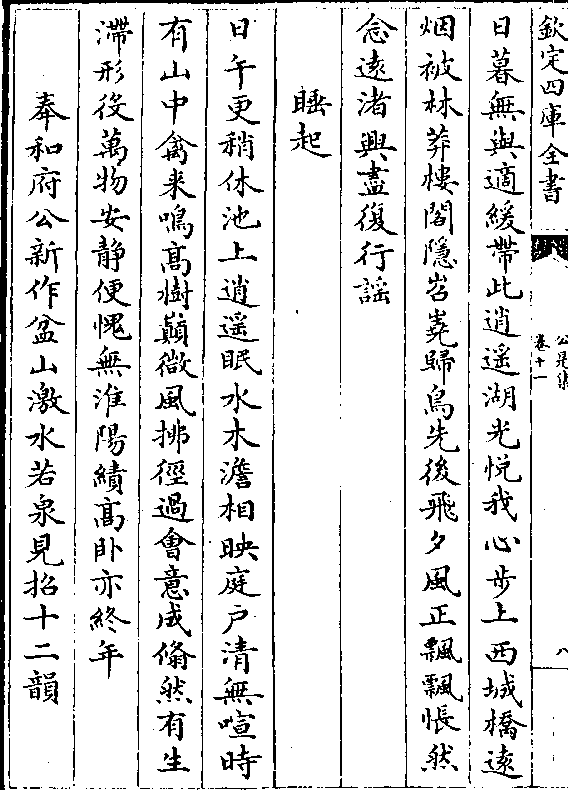 欽定四庫全書
公是集
卷十一
八
日暮無與適緩帶此逍遥湖光悦我心步上西城橋遠
烟被林莽樓閣隱岧嶤歸鳥先後飛夕風正飄飄悵然
念遠渚興盡復行謡
睡起
日午更稍休池上逍遥眠水木澹相映庭户清無喧時
有山中禽来鳴髙樹顛微風拂徑過會意成翛然有生
滯形役萬物安静便愧無淮陽績髙卧亦終年
奉和府公新作盆山激水若泉見招十二韻